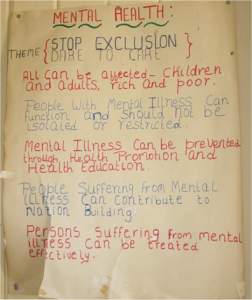 MENTAL HEALTH:
THEME { STOP EXCLUSION }
DARE TO CARE
All Can be affected - Children
and adults, rich and poor.
People With Mental Illness Can
function and Should not be
isolated or restricted.
Mental Illness Can be prevented
through Health Promotion and
Health Education.
People Suffering from Mental
illness Can Contribute to
Nation Building.
Persons Suffering from mental
illness Can be treated
effectively.